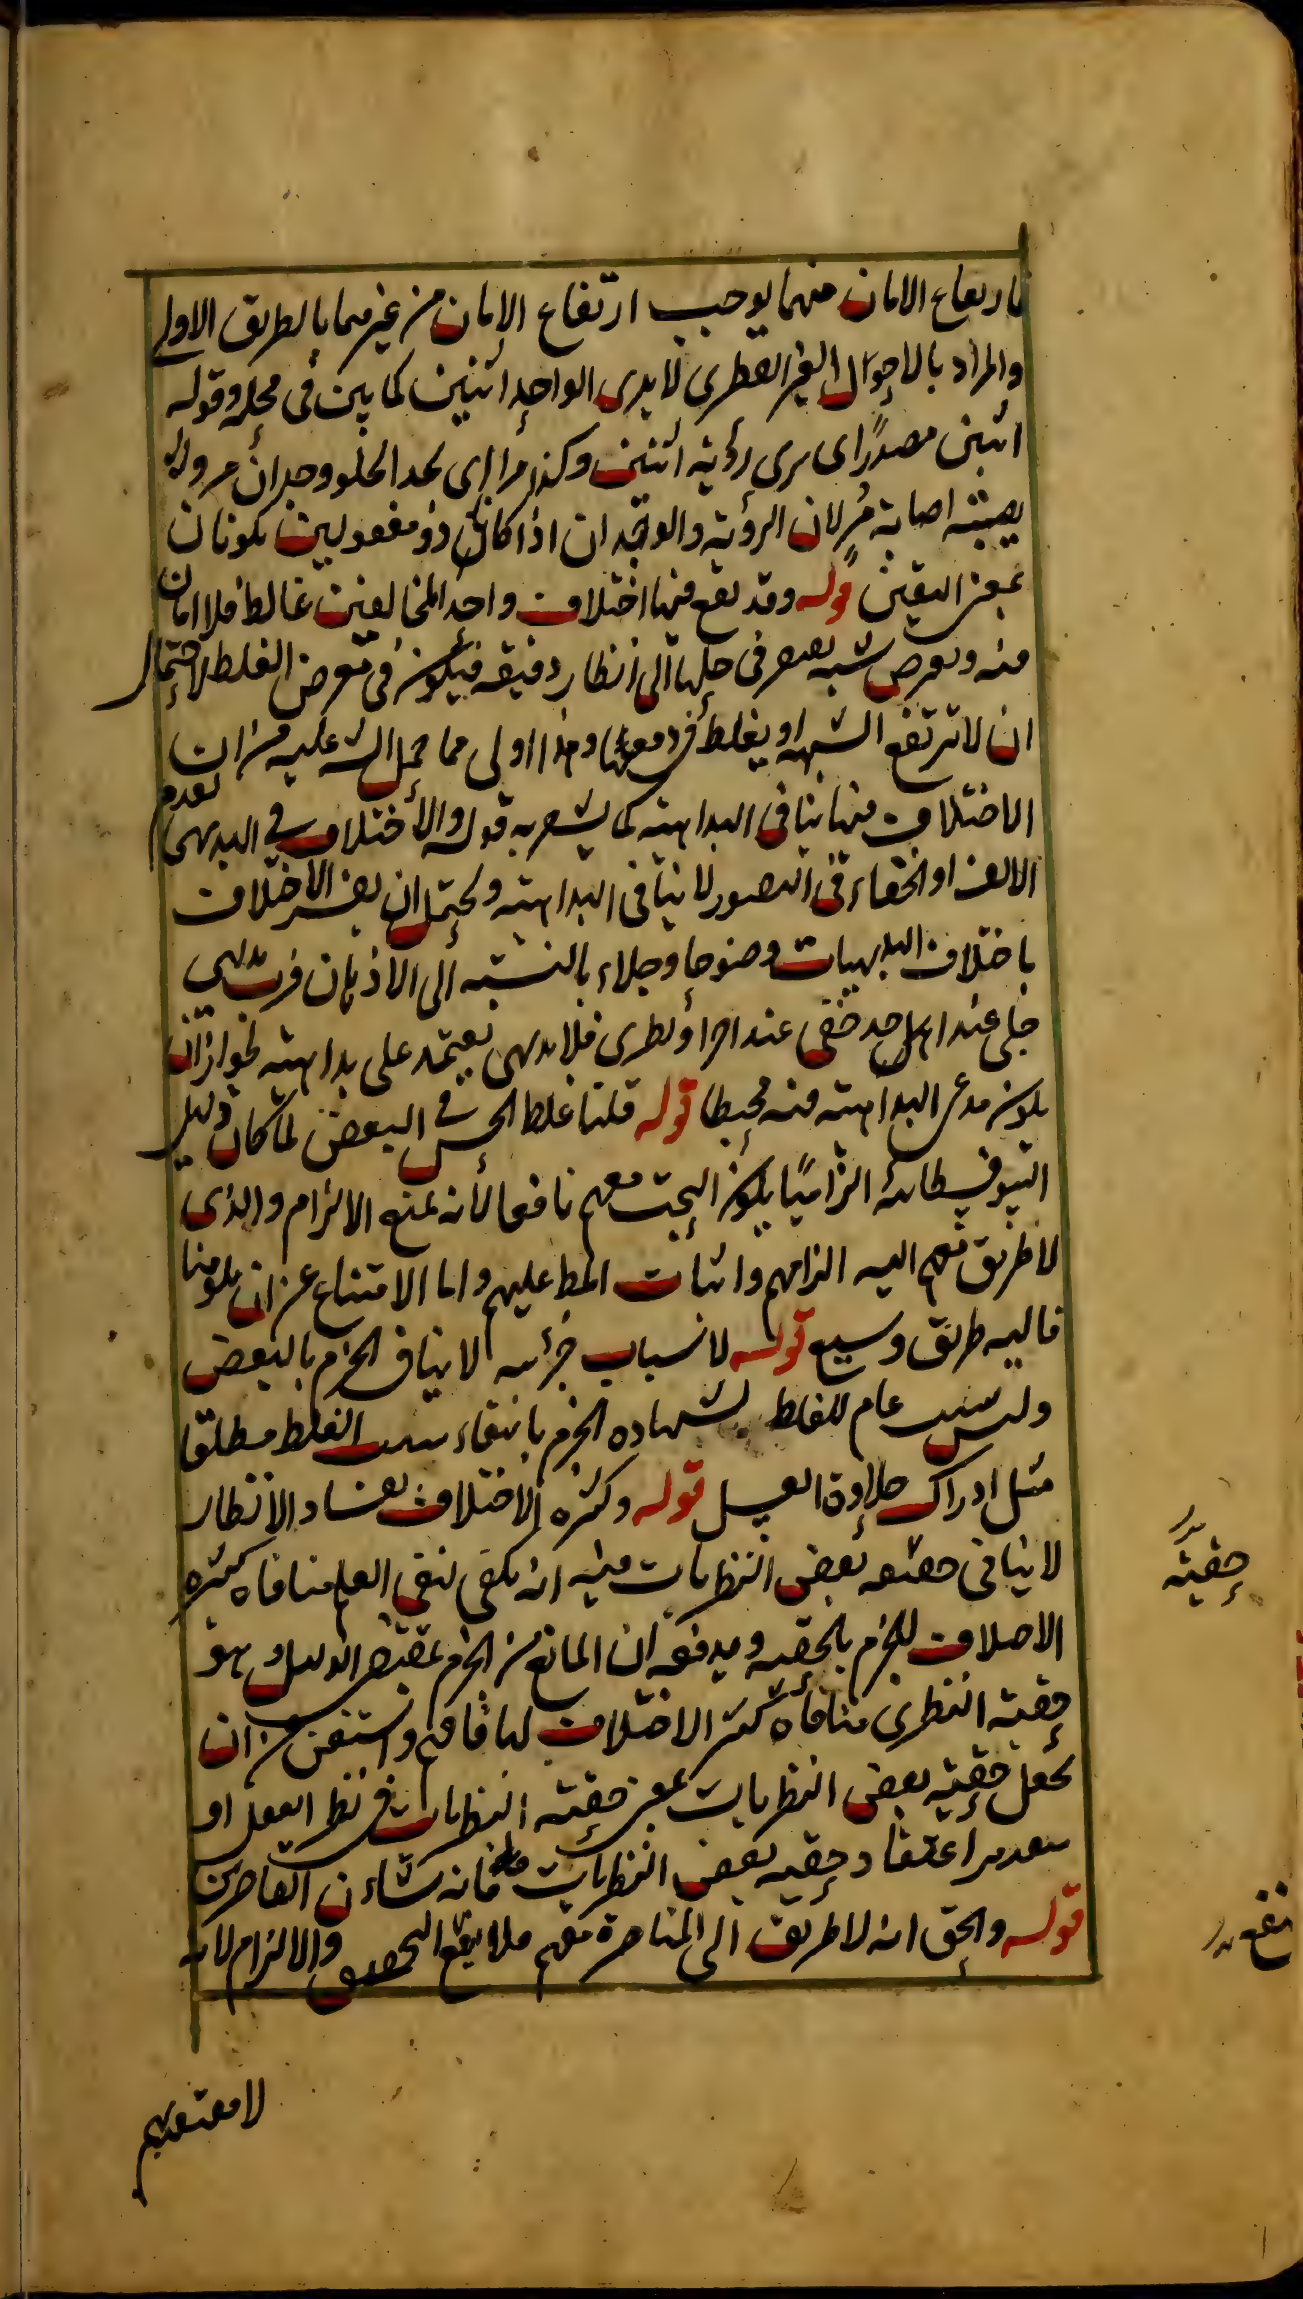 فارتفاع الامان منهما يوجب ارتفاع الامان من غيرهما بالطريق الاولى
والمراد بالاحول الغير الفطرى لا يدرى الواحد اثنين كما بين فى محله وقوله
اثنين مصدرا اى يرى رؤية اثنين وكذا مرا اى يجد الحلو وجدان مر ولا
يصيبه اصابة مر لان الرؤية والوجدان اذا كانا ذو مفعولين يكونان
بمعنى اليقين قوله وقد يقع فيها اختلاف واحد المخالفين غالط فلا امان
منه ويعرض شبه يفتقر فى حلها الى انظار دقيقة فيكون فى معرض الغلط لاحتمال
ان لا ترتفع الشبهة او يغلط فى دفعها وهذا اولى مما حمل الش عليه من ان
الاختلاف فيها ينافى البداهة كما يشعر به قوله والاختلاف فى البديهى لعدم
الالف او الخفاء فى التصور لا ينافى البداهة ويحتمل ان يفسر الاختلاف
باختلاف البديهيات وضوحا وجلاء بالنسبة الى الاذهان فرب بديهى
جلى عند احد خفى عند اخر او نظرى فلا بديهى يعتمد على بداهته لجواز ان
يكون مدعى البداهة فيه مخبطا قوله قلنا غلط الحس فى البعض لما كان دليل
السوفسطائية الزاميا يكون البحث معهم نافعا لانه يمنع الالزام والذى
لا طريق معهم اليه الزامهم واثبات المط عليهم واما الامتناع عن ان يلزمونا
فاليه طريق وسيع قوله لاسباب جزئية لا ينافى الجزم بالبعض
وليس سبب عام للغلط لشهادة الجزم بانتفاء سبب الغلط مطلقا
مثل ادراك حلاوة العسل قوله وكثرة الاختلاف لفساد الانظار
لا ينافى حقية بعض النظريات فيه انه يكفى لنفى العلم منافاة كثرة
الاختلاف للجزم بالحقية ويدفعه ان المانع من الجزم بمقتضى الدليل وهو
حقية النظرى منافاة كثرة الاختلاف لها فافهم واستغن من ان
تجعل حقية بعض النظريات بمعنى حقية النظريات فى نظر العقل او
بتقدير اعتقاد حقية بعض النظريات فانه شان القاصرين
قوله والحق انه لا طريق الى المناظرة معهم فلا ينفع التحقيق والالزام لانه
حقية
نفع
لا معتقدهم